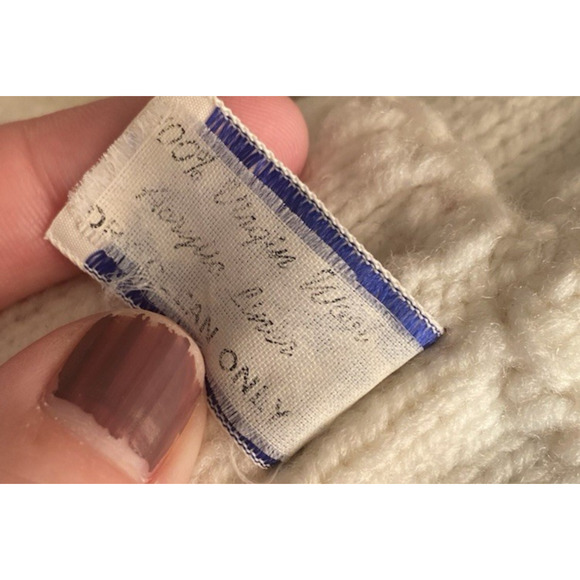 100% Virgin Wool
Acrylic Liner
DRY CLEAN ONLY